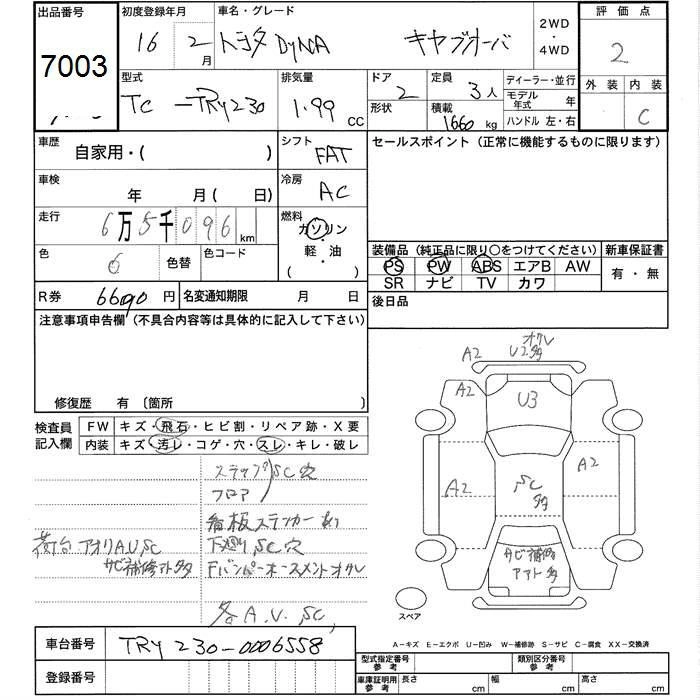 出品番号 初度登録年月 車名・グレード 2WD・4WD 評価点
7003 16 2月 トヨタ DYNA キャブオーバ 2
型式 排気量 ドア 2 定員 3人 ディーラー・並行 外装 内装
TC-TRY230 1.99 CC 形状 積載 1660 kg モデル年式 年 C
ハンドル 左・右
車歴 自家用・( ) シフト FAT セールスポイント(正常に機能するものに限ります)
車検 年 月( 日) 冷房 AC
走行 6万5千096 km 燃料 ガソリン・軽・油・( )
色 6 色替 色コード 装備品(純正品に限り○をつけてください) 新車保証書
PS PW ABS エアB AW 有・無
SR ナビ TV カワ
R券 6690円 名変通知期限 月 日 後日品
注意事項申告欄(不具合内容等は具体的に記入して下さい)
修復歴 有 〔箇所
検査員記入欄 FW キズ・飛石・ヒビ割・リペア跡・X要
内装 キズ・汚レ・コゲ・穴・スレ・キレ・破レ
ステップ SC穴
フロア
看板ステッカーあり
荷台 アオリ A.U.SC 下廻り SC穴
サビ補修アト多 Fバンパーホースメントオサレ
各A.U.SC
オサレ
A2 U2多
A2 U3
A2 A2
SC多
サビ補修アト多
スペア
A-キズ E-エクボ U-凹み W-補修跡 S-サビ C-腐食 XX-交換済
車台番号 TRY230-0006558
登録番号
型式指定番号参考 類別区分番号参考
車庫証明用参考 長さ cm 幅 cm 高さ cm